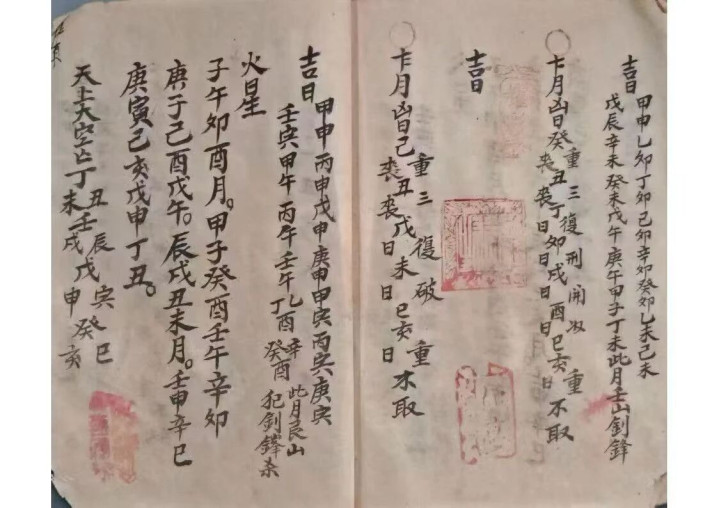 吉日甲申乙卯丁卯己卯辛卯癸卯乙未己未
戊辰辛未癸未戊午庚午甲子丁未此月壬山剑鋒
重三復刑開收重
癸丑丁卯戌酉巳亥不取
丧丧日日日日
吉日
重三復破重
己丑戊未巳亥不取
丧丧日日日
吉日甲申丙申戊申庚申甲寅丙寅庚寅
壬寅甲午丙午壬午乙酉辛此月艮山
丁酉癸酉犯剑鋒杀
火星
子午卯酉月。甲子癸酉壬午辛卯
庚子己酉戊午。辰戌丑未月。壬申辛巳
庚寅己亥戊申丁丑。
天上大空亡丁丑壬辰戊寅癸巳
未戌申癸亥